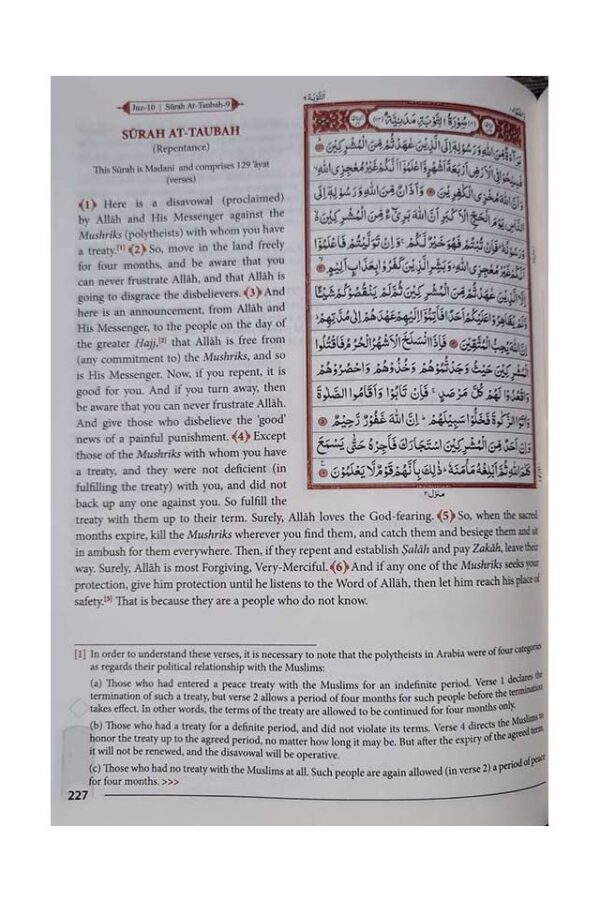 Juz-10 | Sūrah At-Taubah-9
SŪRAH AT-TAUBAH
(Repentance)
This Sūrah is Madani and comprises 129 'āyat
(verses)
(1) Here is a disavowal (proclaimed)
by Allāh and His Messenger against the
Mushriks (polytheists) with whom you have
a treaty.[1] (2) So, move in the land freely
for four months, and be aware that you
can never frustrate Allāh, and that Allāh is
going to disgrace the disbelievers. (3) And
here is an announcement, from Allāh and
His Messenger, to the people on the day of
the greater Ḥajj,[2] that Allāh is free from
(any commitment to) the Mushriks, and so
is His Messenger. Now, if you repent, it is
good for you. And if you turn away, then
be aware that you can never frustrate Allāh.
And give those who disbelieve the 'good'
news of a painful punishment. (4) Except
those of the Mushriks with whom you have
a treaty, and they were not deficient (in
fulfilling the treaty) with you, and did not
back up any one against you. So fulfill the
treaty with them up to their term. Surely, Allāh loves the God-fearing. (5) So, when the sacred
months expire, kill the Mushriks wherever you find them, and catch them and besiege them and sit
in ambush for them everywhere. Then, if they repent and establish Ṣalāh and pay Zakāh, leave their
way. Surely, Allāh is most Forgiving, Very-Merciful. (6) And if any one of the Mushriks seeks your
protection, give him protection until he listens to the Word of Allāh, then let him reach his place of
safety.[3] That is because they are a people who do not know.
التَّوْبَة ٩
سُوْرَةُ التَّوْبَةِ مَدَنِيَّةٌ
بَرَآءَةٌ مِّنَ اللّٰهِ وَرَسُوْلِهٖٓ اِلَى الَّذِيْنَ عٰهَدْتُّمْ مِّنَ الْمُشْرِكِيْنَ
فَسِيْحُوْا فِي الْاَرْضِ اَرْبَعَةَ اَشْهُرٍ وَّاعْلَمُوْٓا اَنَّكُمْ غَيْرُ مُعْجِزِي اللّٰهِ
وَاَنَّ اللّٰهَ مُخْزِي الْكٰفِرِيْنَ وَاَذَانٌ مِّنَ اللّٰهِ وَرَسُوْلِهٖٓ اِلَى
النَّاسِ يَوْمَ الْحَجِّ الْاَكْبَرِ اَنَّ اللّٰهَ بَرِيْٓءٌ مِّنَ الْمُشْرِكِيْنَ
وَرَسُوْلُهٗ فَاِنْ تُبْتُمْ فَهُوَ خَيْرٌ لَّكُمْ وَاِنْ تَوَلَّيْتُمْ فَاعْلَمُوْٓا
اَنَّكُمْ غَيْرُ مُعْجِزِي اللّٰهِ وَبَشِّرِ الَّذِيْنَ كَفَرُوْا بِعَذَابٍ اَلِيْمٍ
اِلَّا الَّذِيْنَ عٰهَدْتُّمْ مِّنَ الْمُشْرِكِيْنَ ثُمَّ لَمْ يَنْقُصُوْكُمْ شَيْـًٔا
وَّلَمْ يُظَاهِرُوْا عَلَيْكُمْ اَحَدًا فَاَتِمُّوْٓا اِلَيْهِمْ عَهْدَهُمْ اِلٰى مُدَّتِهِمْ
اِنَّ اللّٰهَ يُحِبُّ الْمُتَّقِيْنَ فَاِذَا انْسَلَخَ الْاَشْهُرُ الْحُرُمُ فَاقْتُلُوا
الْمُشْرِكِيْنَ حَيْثُ وَجَدْتُّمُوْهُمْ وَخُذُوْهُمْ وَاحْصُرُوْهُمْ
وَاقْعُدُوْا لَهُمْ كُلَّ مَرْصَدٍ فَاِنْ تَابُوْا وَاَقَامُوا الصَّلٰوةَ
وَاٰتَوُا الزَّكٰوةَ فَخَلُّوْا سَبِيْلَهُمْ اِنَّ اللّٰهَ غَفُوْرٌ رَّحِيْمٌ
وَاِنْ اَحَدٌ مِّنَ الْمُشْرِكِيْنَ اسْتَجَارَكَ فَاَجِرْهُ حَتّٰى يَسْمَعَ
كَلٰمَ اللّٰهِ ثُمَّ اَبْلِغْهُ مَاْمَنَهٗ ذٰلِكَ بِاَنَّهُمْ قَوْمٌ لَّا يَعْلَمُوْنَ
منزل ٢
[1] In order to understand these verses, it is necessary to note that the polytheists in Arabia were of four categories
as regards their political relationship with the Muslims:
(a) Those who had entered a peace treaty with the Muslims for an indefinite period. Verse 1 declares the
termination of such a treaty, but verse 2 allows a period of four months for such people before the termination
takes effect. In other words, the terms of the treaty are allowed to be continued for four months only.
(b) Those who had a treaty for a definite period, and did not violate its terms. Verse 4 directs the Muslims to
honor the treaty up to the agreed period, no matter how long it may be. But after the expiry of the agreed term,
it will not be renewed, and the disavowal will be operative.
(c) Those who had no treaty with the Muslims at all. Such people are again allowed (in verse 2) a period of peace
for four months. >>>
227